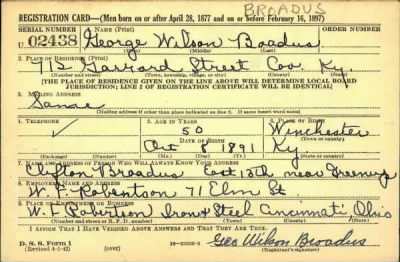 BROADUS
REGISTRATION CARD—(Men born on or after April 28, 1877 and on or before February 16, 1897)
SERIAL NUMBER 1. NAME (Print) ORDER NUMBER
U 02438 George Wilson Broadus
(First) (Middle) (Last)
2. PLACE OF RESIDENCE (Print)
712 Garrard Street Cov. Ky.
(Number and street) (Town, township, village, or city) (County) (State)
[THE PLACE OF RESIDENCE GIVEN ON THE LINE ABOVE WILL DETERMINE LOCAL BOARD
JURISDICTION; LINE 2 OF REGISTRATION CERTIFICATE WILL BE IDENTICAL]
3. MAILING ADDRESS
Same
[Mailing address if other than place indicated on line 2. If same insert word same]
4. TELEPHONE 5. AGE IN YEARS 6. PLACE OF BIRTH
50 Winchester
DATE OF BIRTH (Town or county)
Oct 8 1891 Ky.
(Exchange) (Number) (Mo.) (Day) (Yr.) (State or country)
7. NAME AND ADDRESS OF PERSON WHO WILL ALWAYS KNOW YOUR ADDRESS
Clifton Broadus East 15th near Greenup
8. EMPLOYER'S NAME AND ADDRESS
W. F. Robertson 71 Elm St
9. PLACE OF EMPLOYMENT OR BUSINESS
W. F. Robertson Iron & Steel Cincinnati Ohio
(Number and street or R. F. D. number) (Town) (County) (State)
I AFFIRM THAT I HAVE VERIFIED ABOVE ANSWERS AND THAT THEY ARE TRUE.
D. S. S. Form 1
(Revised 4-1-42) (over) Geo Wilson Broadus
(Registrant's signature)